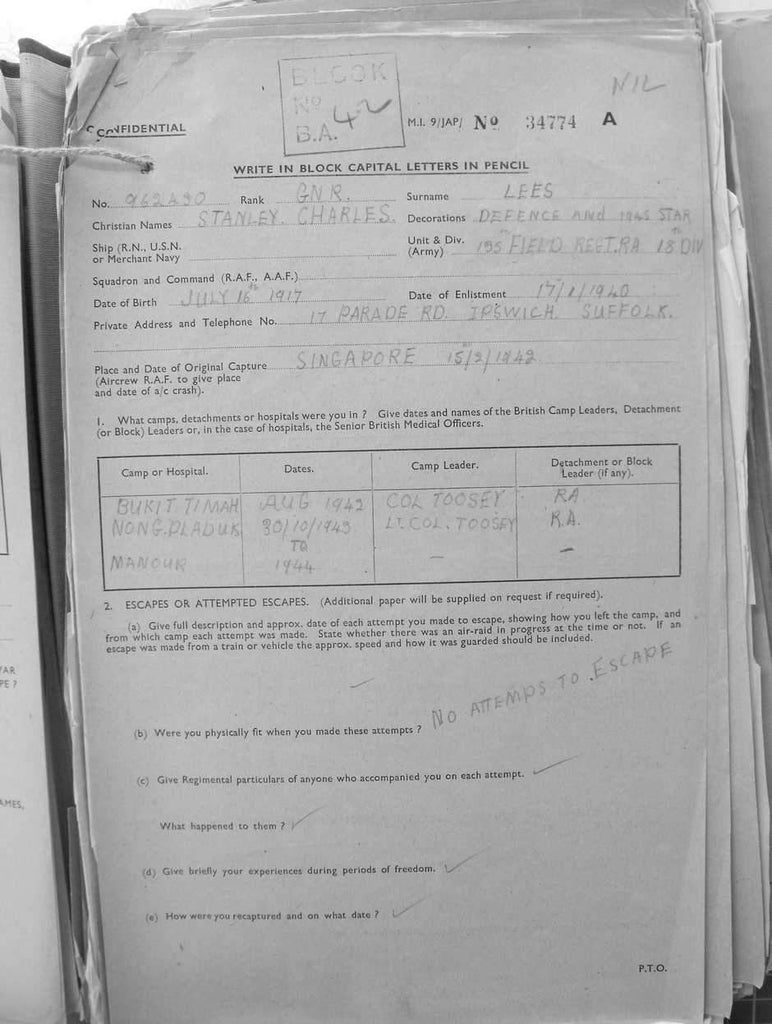 NIL
BLOCK
Nº
B.A. 42
CONFIDENTIAL
M.I. 9/JAP/ Nº 34774 A
WRITE IN BLOCK CAPITAL LETTERS IN PENCIL
No. Rank GNR. Surname LEES
Christian Names STANLEY. CHARLES. Decorations DEFENCE AND 1945 STAR
Ship (R.N., U.S.N. or Merchant Navy
Unit & Div. (Army) 135th FIELD REGT. RA 18 DIV
Squadron and Command (R.A.F., A.A.F.)
Date of Birth JULY 16th 1917 Date of Enlistment 17/1/1940
Private Address and Telephone No. 17 PARADE RD. IPSWICH. SUFFOLK.
Place and Date of Original Capture SINGAPORE 15/2/1942
(Aircrew R.A.F. to give place
and date of a/c crash).
1. What camps, detachments or hospitals were you in ? Give dates and names of the British Camp Leaders, Detachment
(or Block) Leaders or, in the case of hospitals, the Senior British Medical Officers.
Camp or Hospital. Dates. Camp Leader. Detachment or Block Leader (if any).
BUKIT TIMAH AUG 1942 COL TOOSEY RA
NONG. PLADUK 30/10/1943 LT. COL. TOOSEY R.A.
TO
1944 – –
2. ESCAPES OR ATTEMPTED ESCAPES. (Additional paper will be supplied on request if required).
(a) Give full description and approx. date of each attempt you made to escape, showing how you left the camp, and
from which camp each attempt was made. State whether there was an air-raid in progress at the time or not. If an
escape was made from a train or vehicle the approx. speed and how it was guarded should be included.
NO ATTEMPS TO ESCAPE
(b) Were you physically fit when you made these attempts ?
(c) Give Regimental particulars of anyone who accompanied you on each attempt.
What happened to them ?
(d) Give briefly your experiences during periods of freedom.
(e) How were you recaptured and on what date ?
P.T.O.